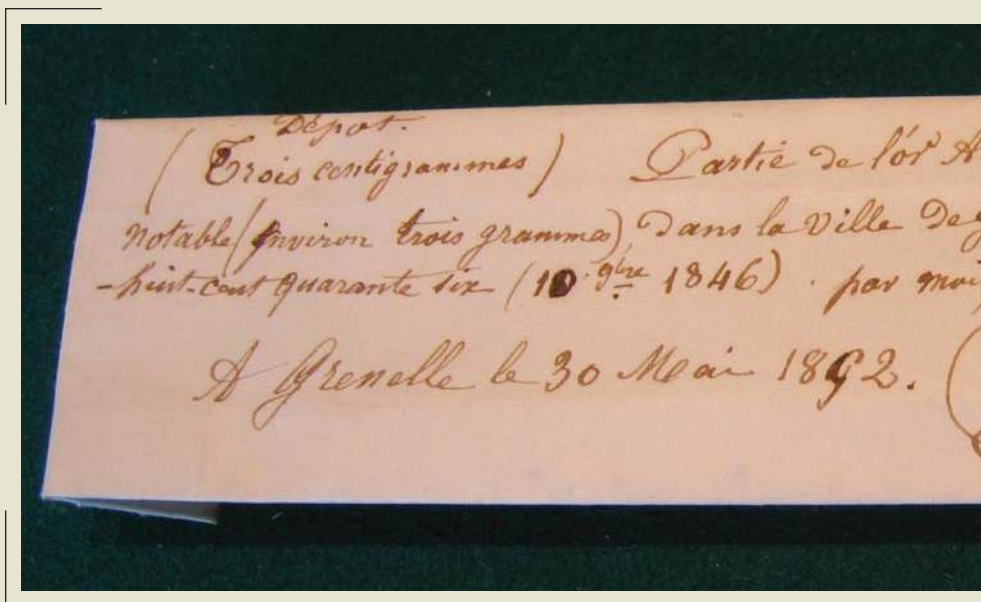 Dépot.
(Trois centigrammes) Partie de l'or
notable (environ trois grammes), dans la Ville De
-huit-cent quarante six (10 9bre 1846). par moi
A Grenelle le 30 Mai 1852.